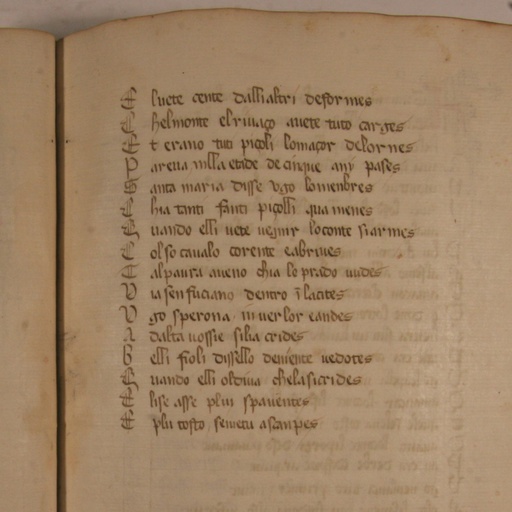 E luete cente dalli altri deformes
C helmonte el riuaço auete tuto carges
E t erano tuti piçoli lomaçor delor nes
P areua nilla etade de cinque any pases
S anta maria disse vgo lomenbres
C hia tanti fanti piçolli qua menes
Q uando elli uete uegnir lo conte si armes
C ol so caualo corente eabriues
E al paura aueno chia lo prado uudes
V ia sen fuciano dentro ī lacites
V go sperona inuer lor eandes
A dalta uossie si lia crides
B elli fioli dissello deniente uedotes
Q uando elli oldiua chelasi crides
E lise asse plui spauentes
E plu tosto senuetu a scanpes